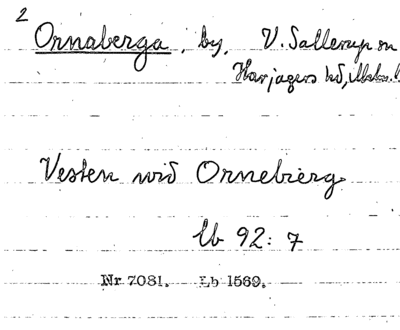 2
Ornaberga, by, V. Sallerup sn
Harjagers hd, Mlm. l
Vesten wid Ornebierg
lb 92: 7
Nr 7081. Lb 1569.